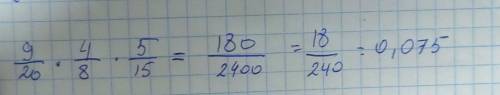 9/20 · 4/8 · 5/15 = 180/2400 = 18/240 = 0,075